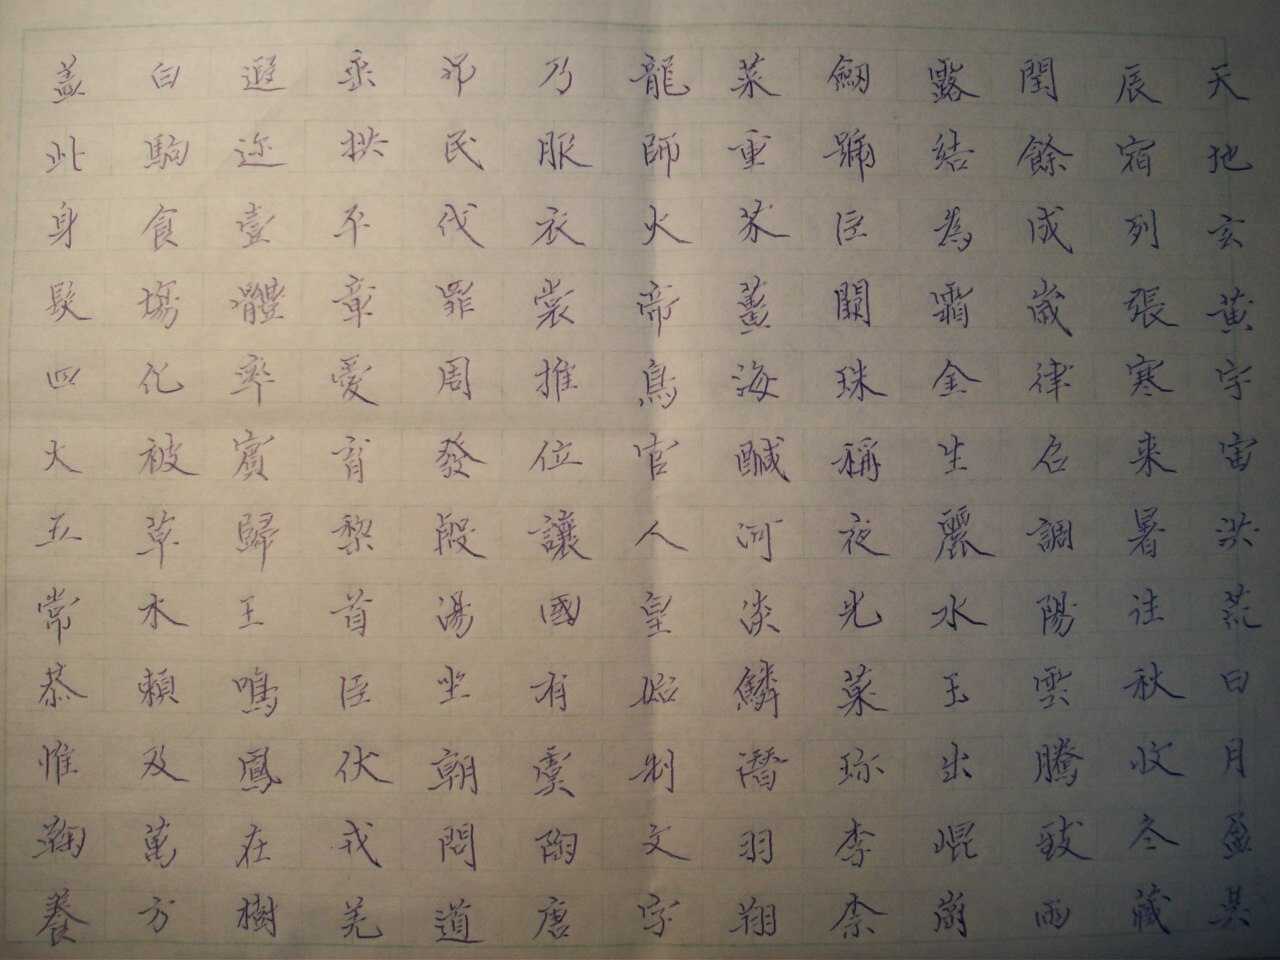 天地玄黃宇宙洪荒日月盈昃
辰宿列張寒来暑往秋收冬藏
閏餘成歲律召調陽雲騰致雨
露結為霜金生麗水玉出崐崗
劒號巨闕珠稱夜光菓珎李柰
菜重芥薑海醎河淡鱗潛羽翔
龍師火帝鳥官人皇始制文字
乃服衣裳推位讓國有虞陶唐
弔民伐罪周發殷湯坐朝問道
垂拱平章愛育黎首臣伏戎羌
遐迩壹體率賓歸王鳴鳳在樹
白駒食場化被草木賴及萬方
蓋此身髮四大五常恭惟鞠養